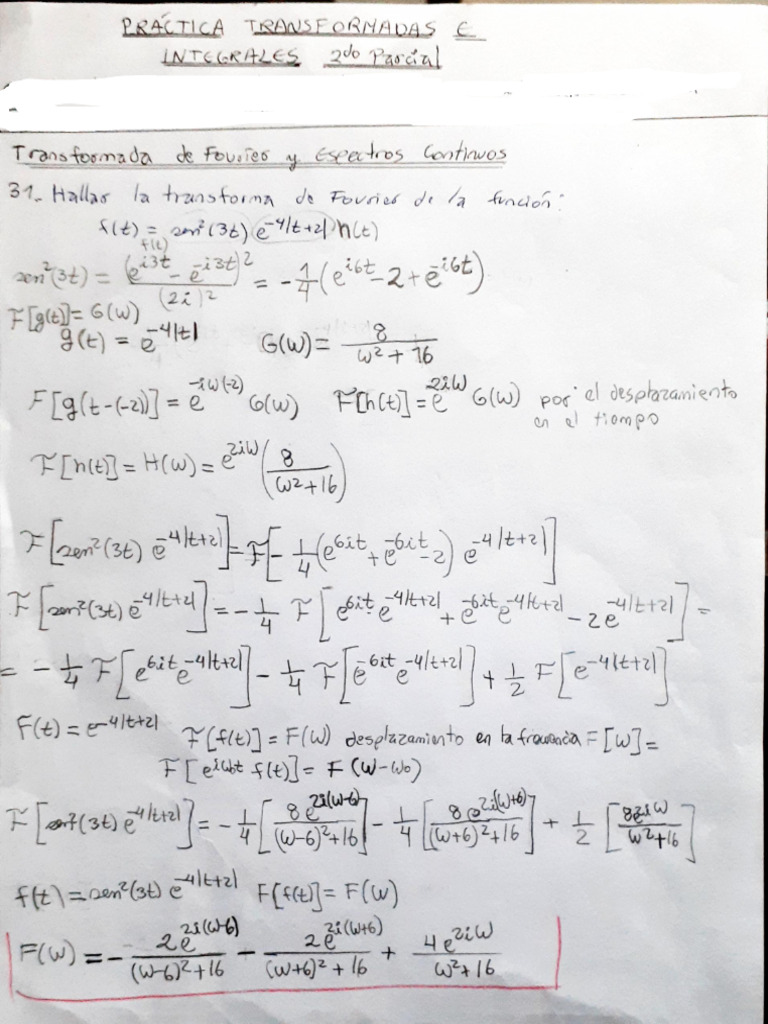 PRÁCTICA TRANSFORMADAS E
INTEGRALES 2do Parcial
Transformada de Fourier y Espectros Continuos
31.- Hallar la transforma de Fourier de la función:
f(t) = sen²(3t) e^{-4|t+2|} h(t)
f(t)
sen²(3t) = (e^{i3t} - e^{-i3t})² / (2i)² = -1/4 (e^{i6t} - 2 + e^{-i6t})
F[g(t)] = G(w)
g(t) = e^{-4|t|} G(w) = 8/(w² + 16)
F[g(t-(-2))] = e^{-iw(-2)} G(w) F[h(t)] = e^{2iw} G(w) por el desplazamiento
en el tiempo
F[h(t)] = H(w) = e^{2iw} (8/(w²+16))
F[sen²(3t) e^{-4|t+2|}] = F[-1/4 (e^{6it} + e^{-6it} - 2) e^{-4|t+2|}]
F[sen²(3t) e^{-4|t+2|}] = -1/4 F[e^{6it} e^{-4|t+2|} + e^{-6it} e^{-4|t+2|} - 2e^{-4|t+2|}] =
= -1/4 F[e^{6it} e^{-4|t+2|}] - 1/4 F[e^{-6it} e^{-4|t+2|}] + 1/2 F[e^{-4|t+2|}]
F(t) = e^{-4|t+2|} F[f(t)] = F(w) desplazamiento en la frecuencia F[w] =
F[e^{iw0t} f(t)] = F(w-w0)
F[sen²(3t) e^{-4|t+2|}] = -1/4 [8e^{2i(w-6)}/((w-6)²+16)] - 1/4 [8e^{2i(w+6)}/((w+6)²+16)] + 1/2 [8e^{2iw}/(w²+16)]
f(t) = sen²(3t) e^{-4|t+2|} F[f(t)] = F(w)
F(w) = - 2e^{2i(w-6)}/((w-6)²+16) - 2e^{2i(w+6)}/((w+6)²+16) + 4e^{2iw}/(w²+16)